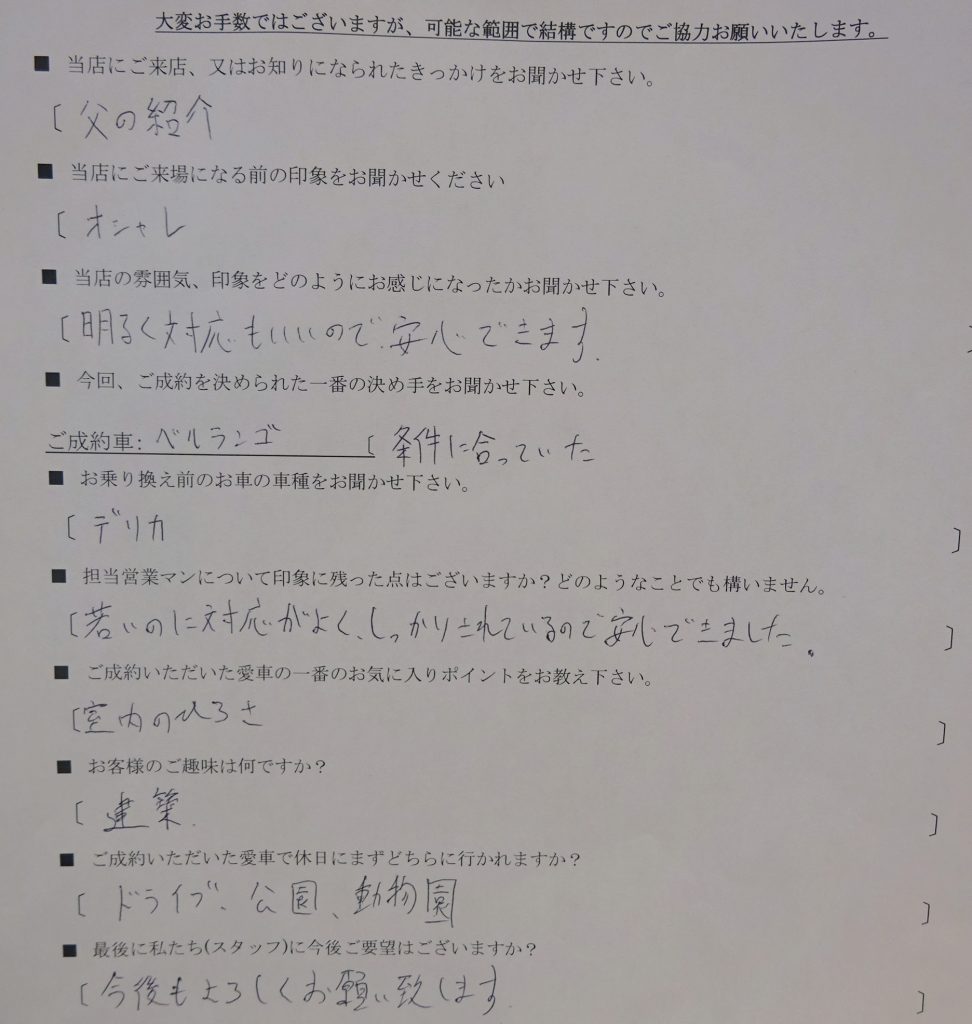 大変お手数ではございますが、可能な範囲で結構ですのでご協力お願いいたします。
■ 当店にご来店、又はお知りになられたきっかけをお聞かせ下さい。
[ 父の紹介
■ 当店にご来場になる前の印象をお聞かせください
[ オシャレ
■ 当店の雰囲気、印象をどのようにお感じになったかお聞かせ下さい。
[ 明るく対応もいいので、安心できます。
■ 今回、ご成約を決められた一番の決め手をお聞かせ下さい。
ご成約車: ベルランゴ [ 条件に合っていた
■ お乗り換え前のお車の車種をお聞かせ下さい。
[ デリカ ]
■ 担当営業マンについて印象に残った点はございますか？どのようなことでも構いません。
[ 若いのに対応がよく、しっかりされているので安心できました。 ]
■ ご成約いただいた愛車の一番のお気に入りポイントをお教え下さい。
[ 室内のひろさ ]
■ お客様のご趣味は何ですか？
[ 建築. ]
■ ご成約いただいた愛車で休日にまずどちらに行かれますか？
[ ドライブ、公園、動物園 ]
■ 最後に私たち(スタッフ)に今後ご要望はございますか？
[ 今後もよろしくお願い致します. ]